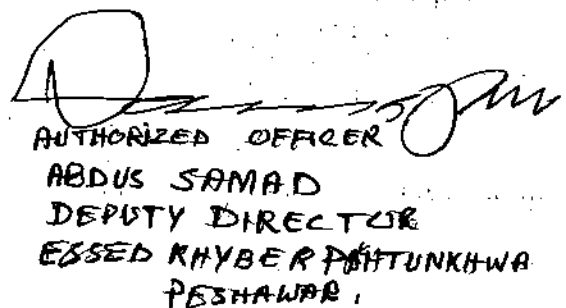 AUTHORIZED OFFICER
ABDUS SAMAD
DEPUTY DIRECTOR
ESSED KHYBER PAHTUNKHWA
PESHAWAR.